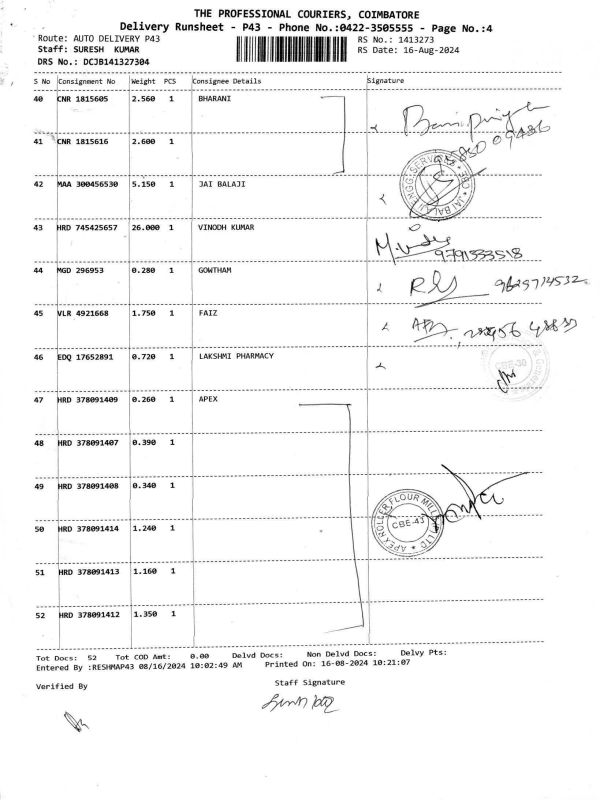 THE PROFESSIONAL COURIERS, COIMBATORE
Delivery Runsheet - P43 - Phone No.:0422-3505555 - Page No.:4
Route: AUTO DELIVERY P43 RS No.: 1413273
Staff: SURESH KUMAR RS Date: 16-Aug-2024
DRS No.: DCJB141327304
S No Consignment No Weight PCS Consignee Details Signature
40 CNR 1815605 2.560 1 BHARANI
41 CNR 1815616 2.600 1
42 MAA 300456530 5.150 1 JAI BALAJI
JAI BALAJI ENGG SERVICES * CBE
43 HRD 745425657 26.000 1 VINODH KUMAR
9791333518
44 MGD 296953 0.280 1 GOWTHAM
45 VLR 4921668 1.750 1 FAIZ
46 EDQ 17652891 0.720 1 LAKSHMI PHARMACY
CBE-30
47 HRD 378091409 0.260 1 APEX
48 HRD 378091407 0.390 1
49 HRD 378091408 0.340 1
CBE-43
50 HRD 378091414 1.240 1
51 HRD 378091413 1.160 1
52 HRD 378091412 1.350 1
Tot Docs: 52 Tot COD Amt: 0.00 Delvd Docs: Non Delvd Docs: Delvy Pts:
Entered By :RESHMAP43 08/16/2024 10:02:49 AM Printed On: 16-08-2024 10:21:07
Verified By Staff Signature